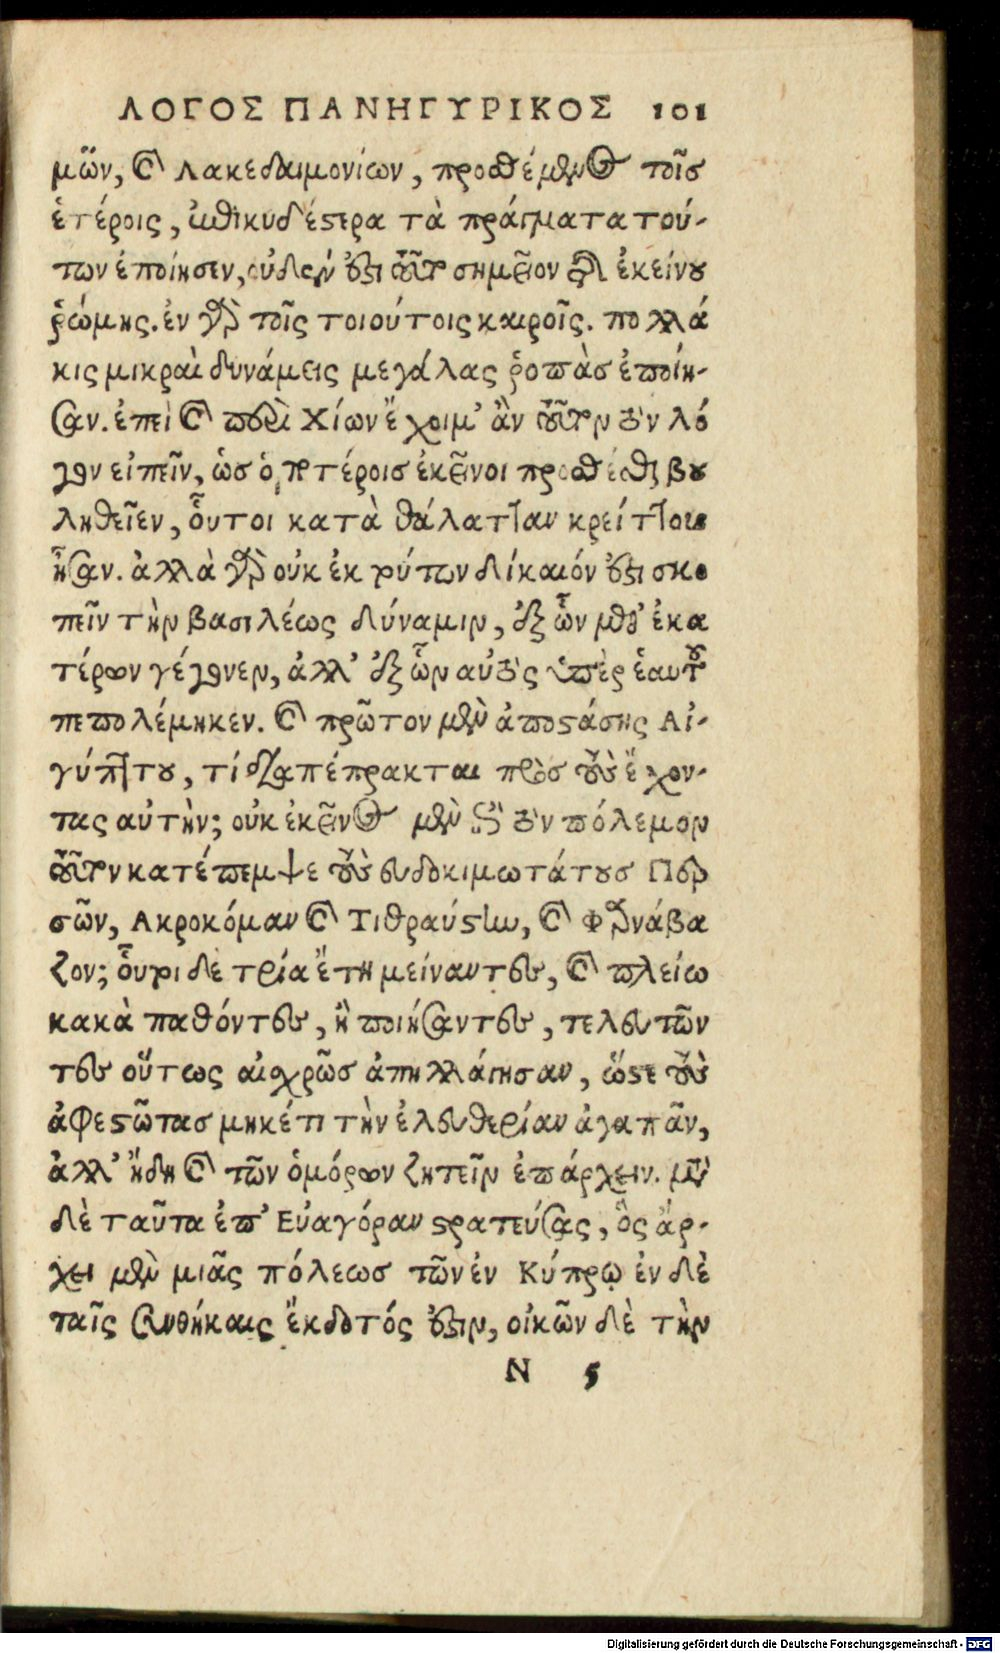 ΛΟΓΟΣ ΠΑΝΗΓΥΡΙΚΟΣ 101
μῶν, καὶ Λακεδαιμονίων, προσθέμενος τοῖς
ἑτέροις, ἐπικυδέστερα τὰ πράγματα τού-
των ἐποίησεν, οὐδὲν ἐστι τοῦτο σημεῖον τῆς ἐκείνου
ῥώμης. ἐν γὰρ τοῖς τοιούτοις καιροῖς. πολλά
κις μικραὶ δυνάμεις μεγάλας ῥοπὰς ἐποίη-
σαν. ἐπεὶ καὶ περὶ Χίων ἔχοιμ' ἂν τοῦτον τὸν λό
γον εἰπεῖν, ὡς ὁποτέροις ἐκεῖνοι προσθέσθαι βου
ληθεῖεν, οὗτοι κατὰ θάλατταν κρείττους
ἦσαν. ἀλλὰ γὰρ οὐκ ἐκ τούτων δίκαιόν ἐστι σκο
πεῖν τὴν βασιλέως δύναμιν, ἐξ ὧν μεθ' ἑκα
τέρων γέγονεν, ἀλλ' ἐξ ὧν αὐτὸς ὑπὲρ ἑαυτοῦ
πεπολέμηκεν. καὶ πρῶτον μὲν ἀποστάσης Αἰ-
γύπτου, τί διαπέπρακται πρὸς τοὺς ἔχον-
τας αὐτὴν; οὐκ ἐκεῖνος μὲν ἐπὶ τὸν πόλεμον
τοῦτον κατέπεμψε τοὺς εὐδοκιμωτάτους Περ
σῶν, Ακροκόμαν καὶ Τιθραύστην, καὶ Φαρνάβα
ζον; οὗτοι δὲ τρία ἔτη μείναντες, καὶ πλείω
κακὰ παθόντες, ἢ ποιήσαντες, τελευτῶν
τες οὕτως αἰσχρῶς ἀπηλλάγησαν, ὥστε τοὺς
ἀφεστῶτας μηκέτι τὴν ἐλευθερίαν ἀγαπᾶν,
ἀλλ' ἤδη καὶ τῶν ὁμόρων ζητεῖν ἐπάρχειν. μετὰ
δὲ ταῦτα ἐπ' Εὐαγόραν στρατεύσας, ὃς ἄρ-
χει μὲν μιᾶς πόλεως τῶν ἐν Κύπρῳ ἐν δὲ
ταῖς συνθήκαις ἔκδοτός ἐστιν, οἰκῶν δὲ τὴν
N 5
Digitalisierung gefördert durch die Deutsche Forschungsgemeinschaft - DFG